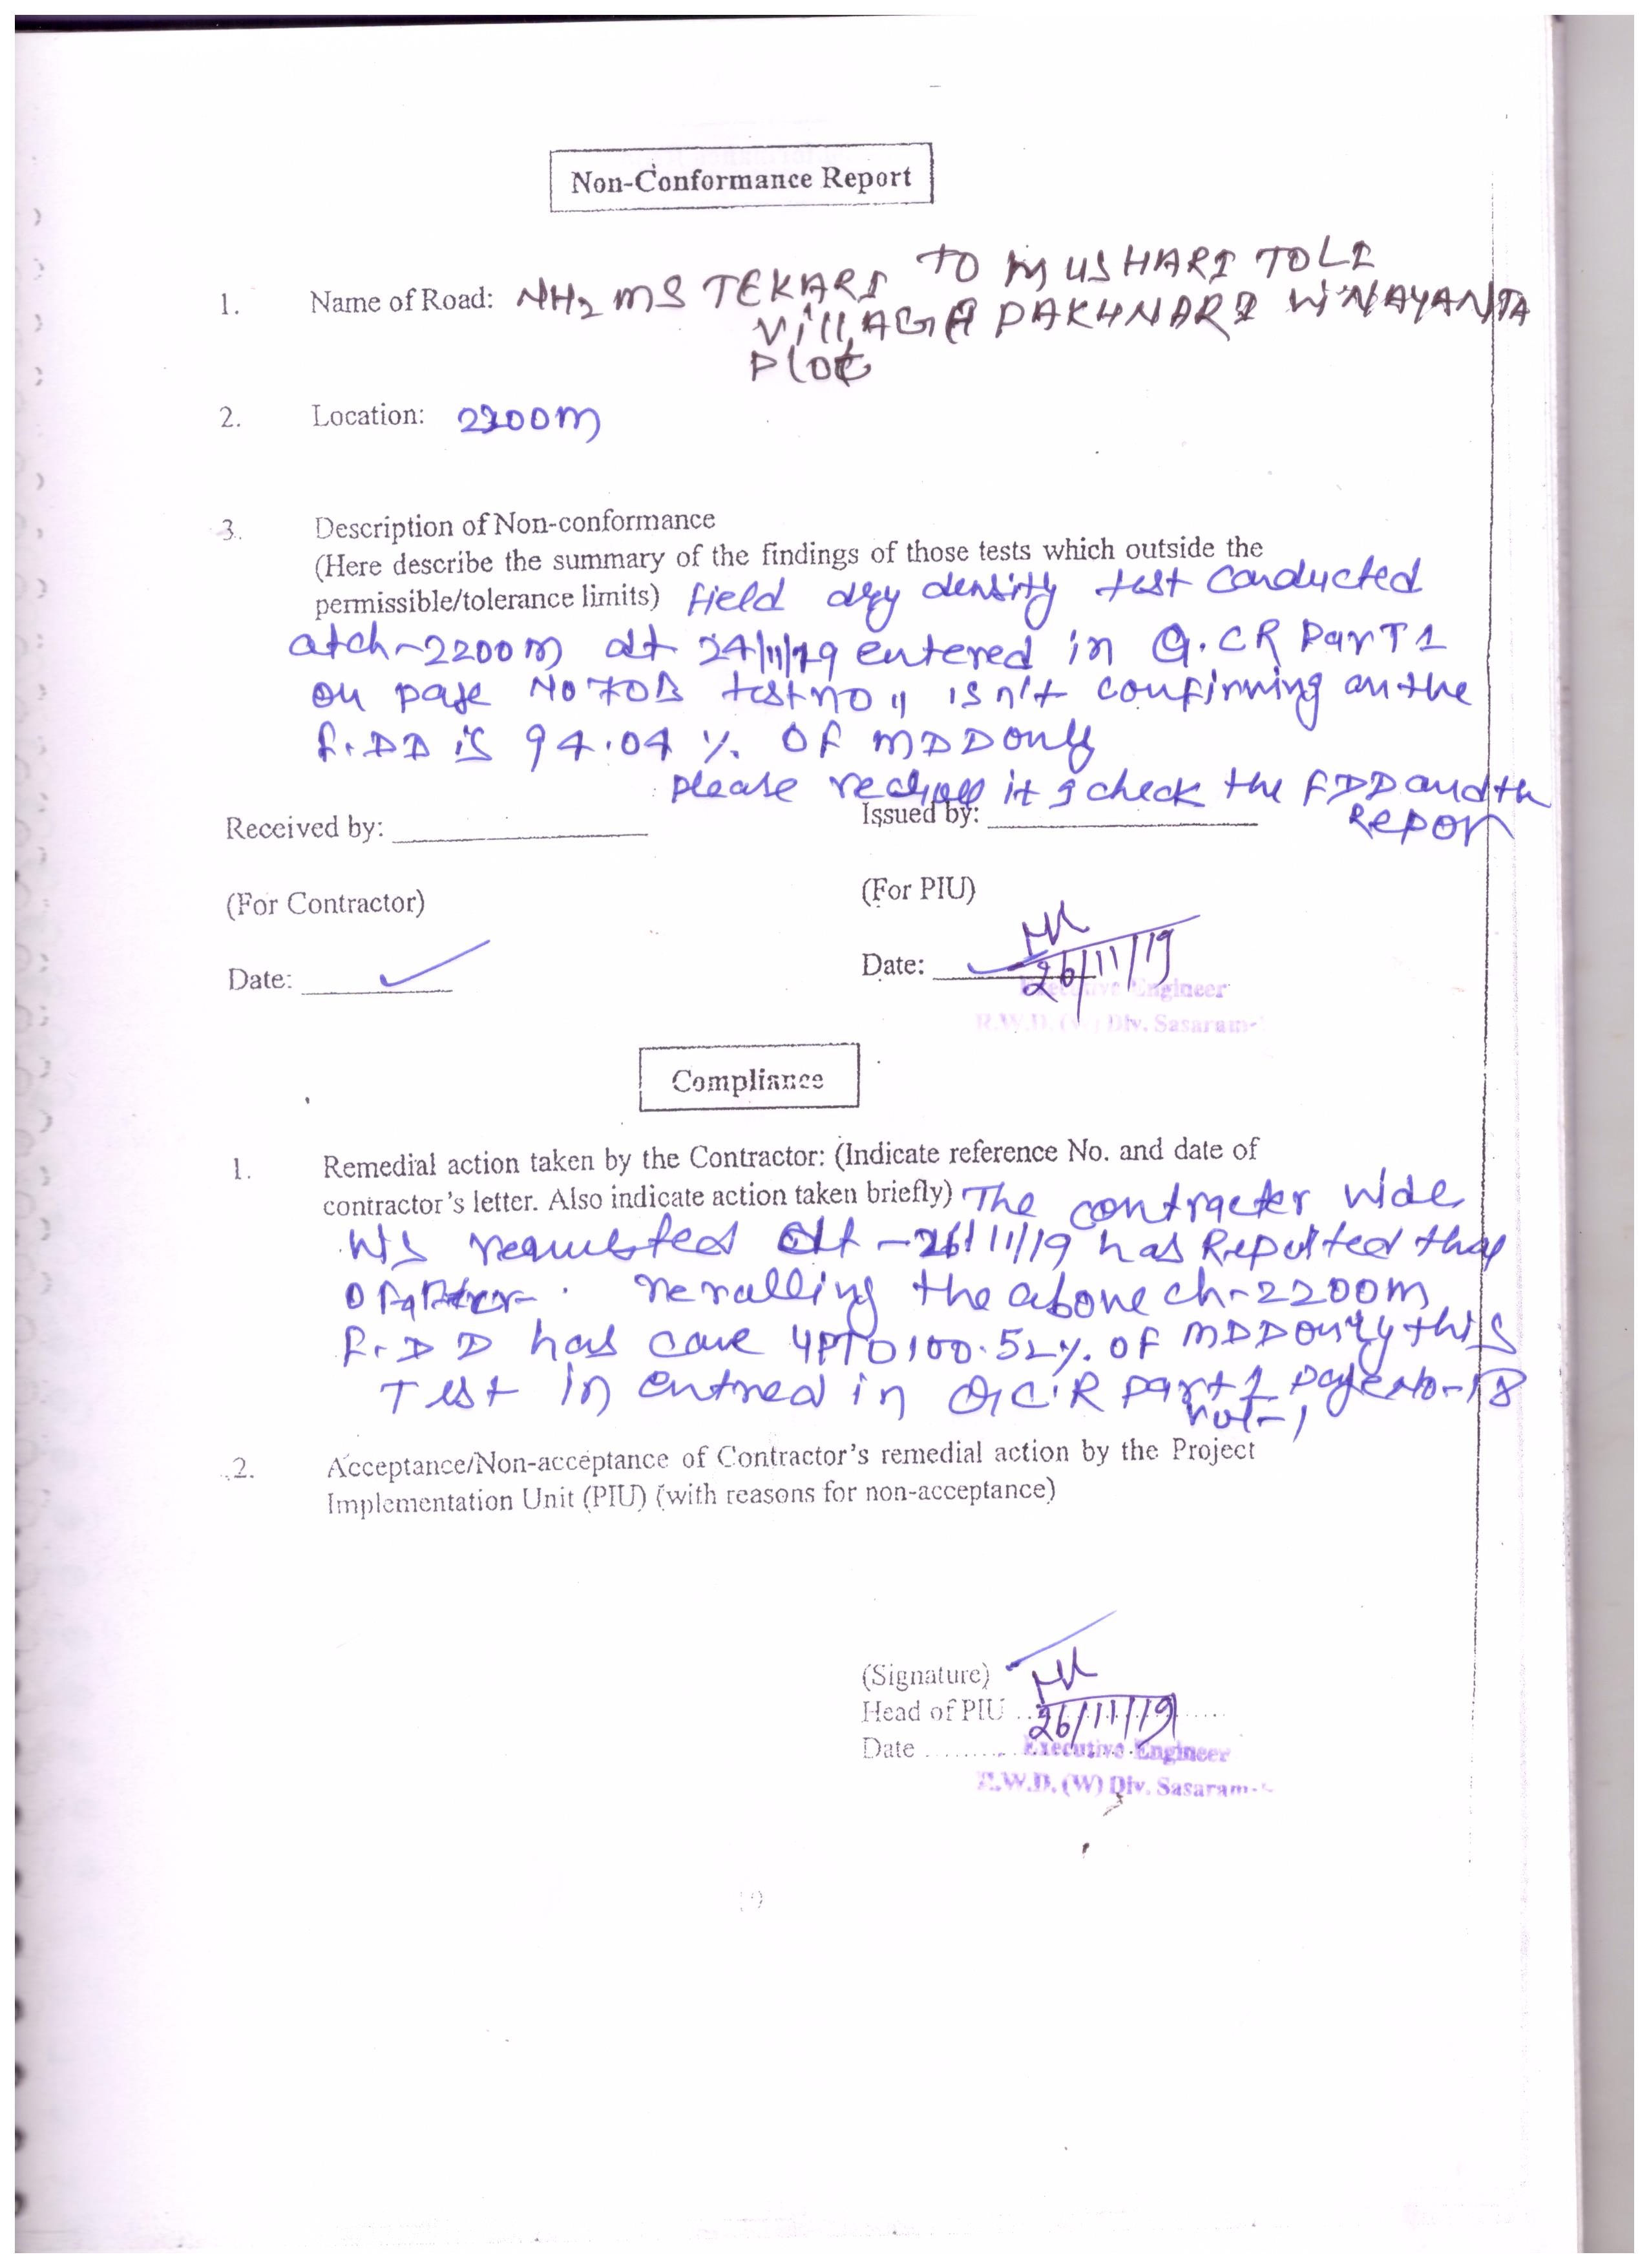 Non-Conformance Report
1. Name of Road: NH2 MS TEKARI TO MUSHARI TOLI
VillAGE PAKHNARI
Plot
2. Location: 2200m
3. Description of Non-conformance
(Here describe the summary of the findings of those tests which outside the
permissible/tolerance limits) field dry density test conducted
at ch-2200m dt 24/11/19 entered in Q.CR Part 1
on page No test no isn't confirming an the
F.DD is 94.04 % OF MDD only
please it & check the FDD and th
Repor
Received by:
Issued by:
(For Contractor)
(For PIU)
Date:
Date: 26/11/19
Executive Engineer
R.W.D. (W) Div. Sasaram-
Compliance
1. Remedial action taken by the Contractor: (Indicate reference No. and date of
contractor's letter. Also indicate action taken briefly) The contracter wide
his requested dt -26/11/19 has Reported that
rerolling the above ch-2200m
F.DD has 100.52%. OF MDD only this
Test in entred in Q.C.R part 1 page no-
2. Acceptance/Non-acceptance of Contractor's remedial action by the Project
Implementation Unit (PIU) (with reasons for non-acceptance)
(Signature)
Head of PIU 26/11/19
Date
Executive Engineer
R.W.D. (W) Div. Sasaram-